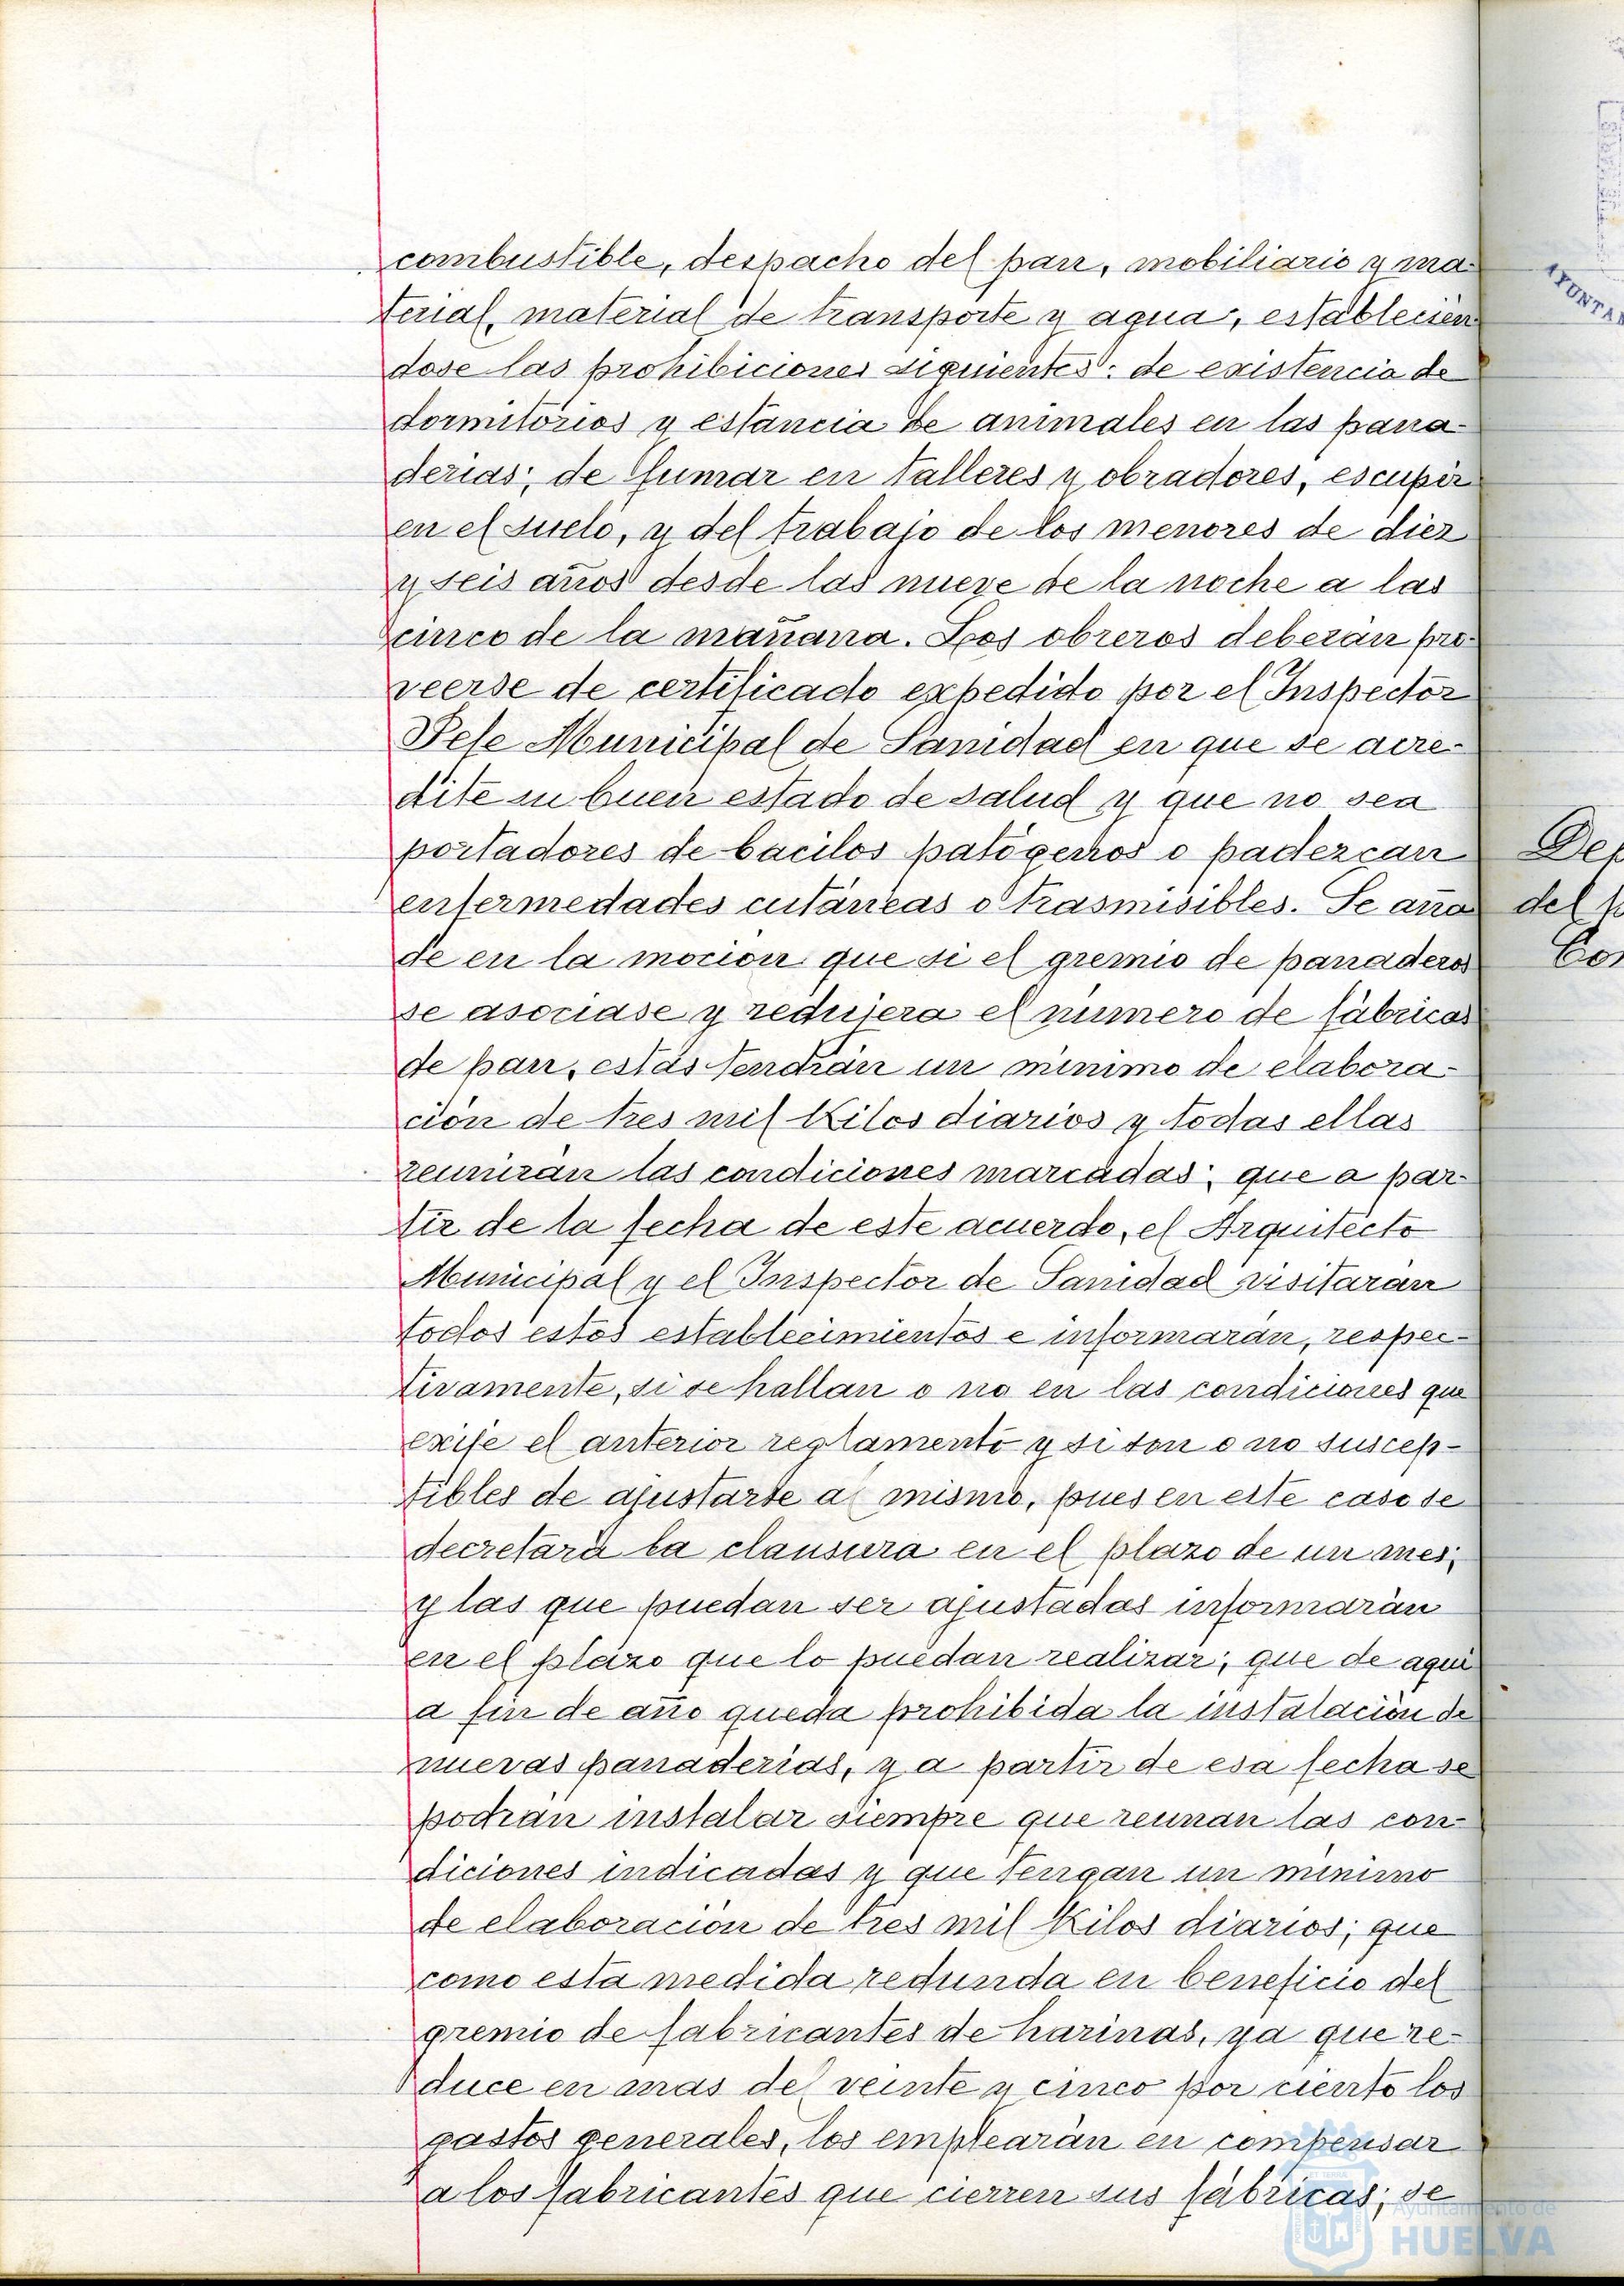 combustible, despacho del pan, mobiliario y ma-
terial, material de transporte y agua, establecién
dose las prohibiciones siguientes: de existencia de
dormitorios y estancia de animales en las pana-
derias; de fumar en talleres y obradores, escupir
en el suelo, y del trabajo de los menores de diez
y seis años desde las nueve de la noche a las
cinco de la mañana. Los obreros deberán pro-
veerse de certificado expedido por el Inspector
Jefe Municipal de Sanidad en que se acre-
dite su buen estado de salud y que no sea
portadores de bacilos patógenos o padezcan
enfermedades cutáneas o trasmisibles. Se aña
de en la moción que si el gremio de panaderos
se asociase y redujera el número de fábricas
de pan, estas tendrán un minimo de elabora-
ción de tres mil Kilos diarios y todas ellas
reunirán las condiciones marcadas; que a par-
tir de la fecha de este acuerdo, el Arquitecto
Municipal y el Inspector de Sanidad visitarán
todos estos establecimientos e informarán, respec-
tivamente, si se hallan o no en las condiciones que
exije el anterior reglamento y si son o no suscep-
tibles de ajustarse al mismo, pues en este caso se
decretará la clausura en el plazo de un mes;
y las que puedan ser ajustadas informarán
en el plazo que lo puedan realizar; que de aqui
a fin de año queda prohibida la instalación de
nuevas panaderias, y a partir de esa fecha se
podrán instalar siempre que reunan las con-
diciones indicadas y que tengan un minimo
de elaboración de tres mil Kilos diarios; que
como esta medida redunda en beneficio del
gremio de fabricantes de harinas, ya que re-
duce en mas del veinte y cinco por ciento los
gastos generales, los emplearán en compensar
a los fabricantes que cierren sus fábricas; se
Ayuntamiento de
HUELVA